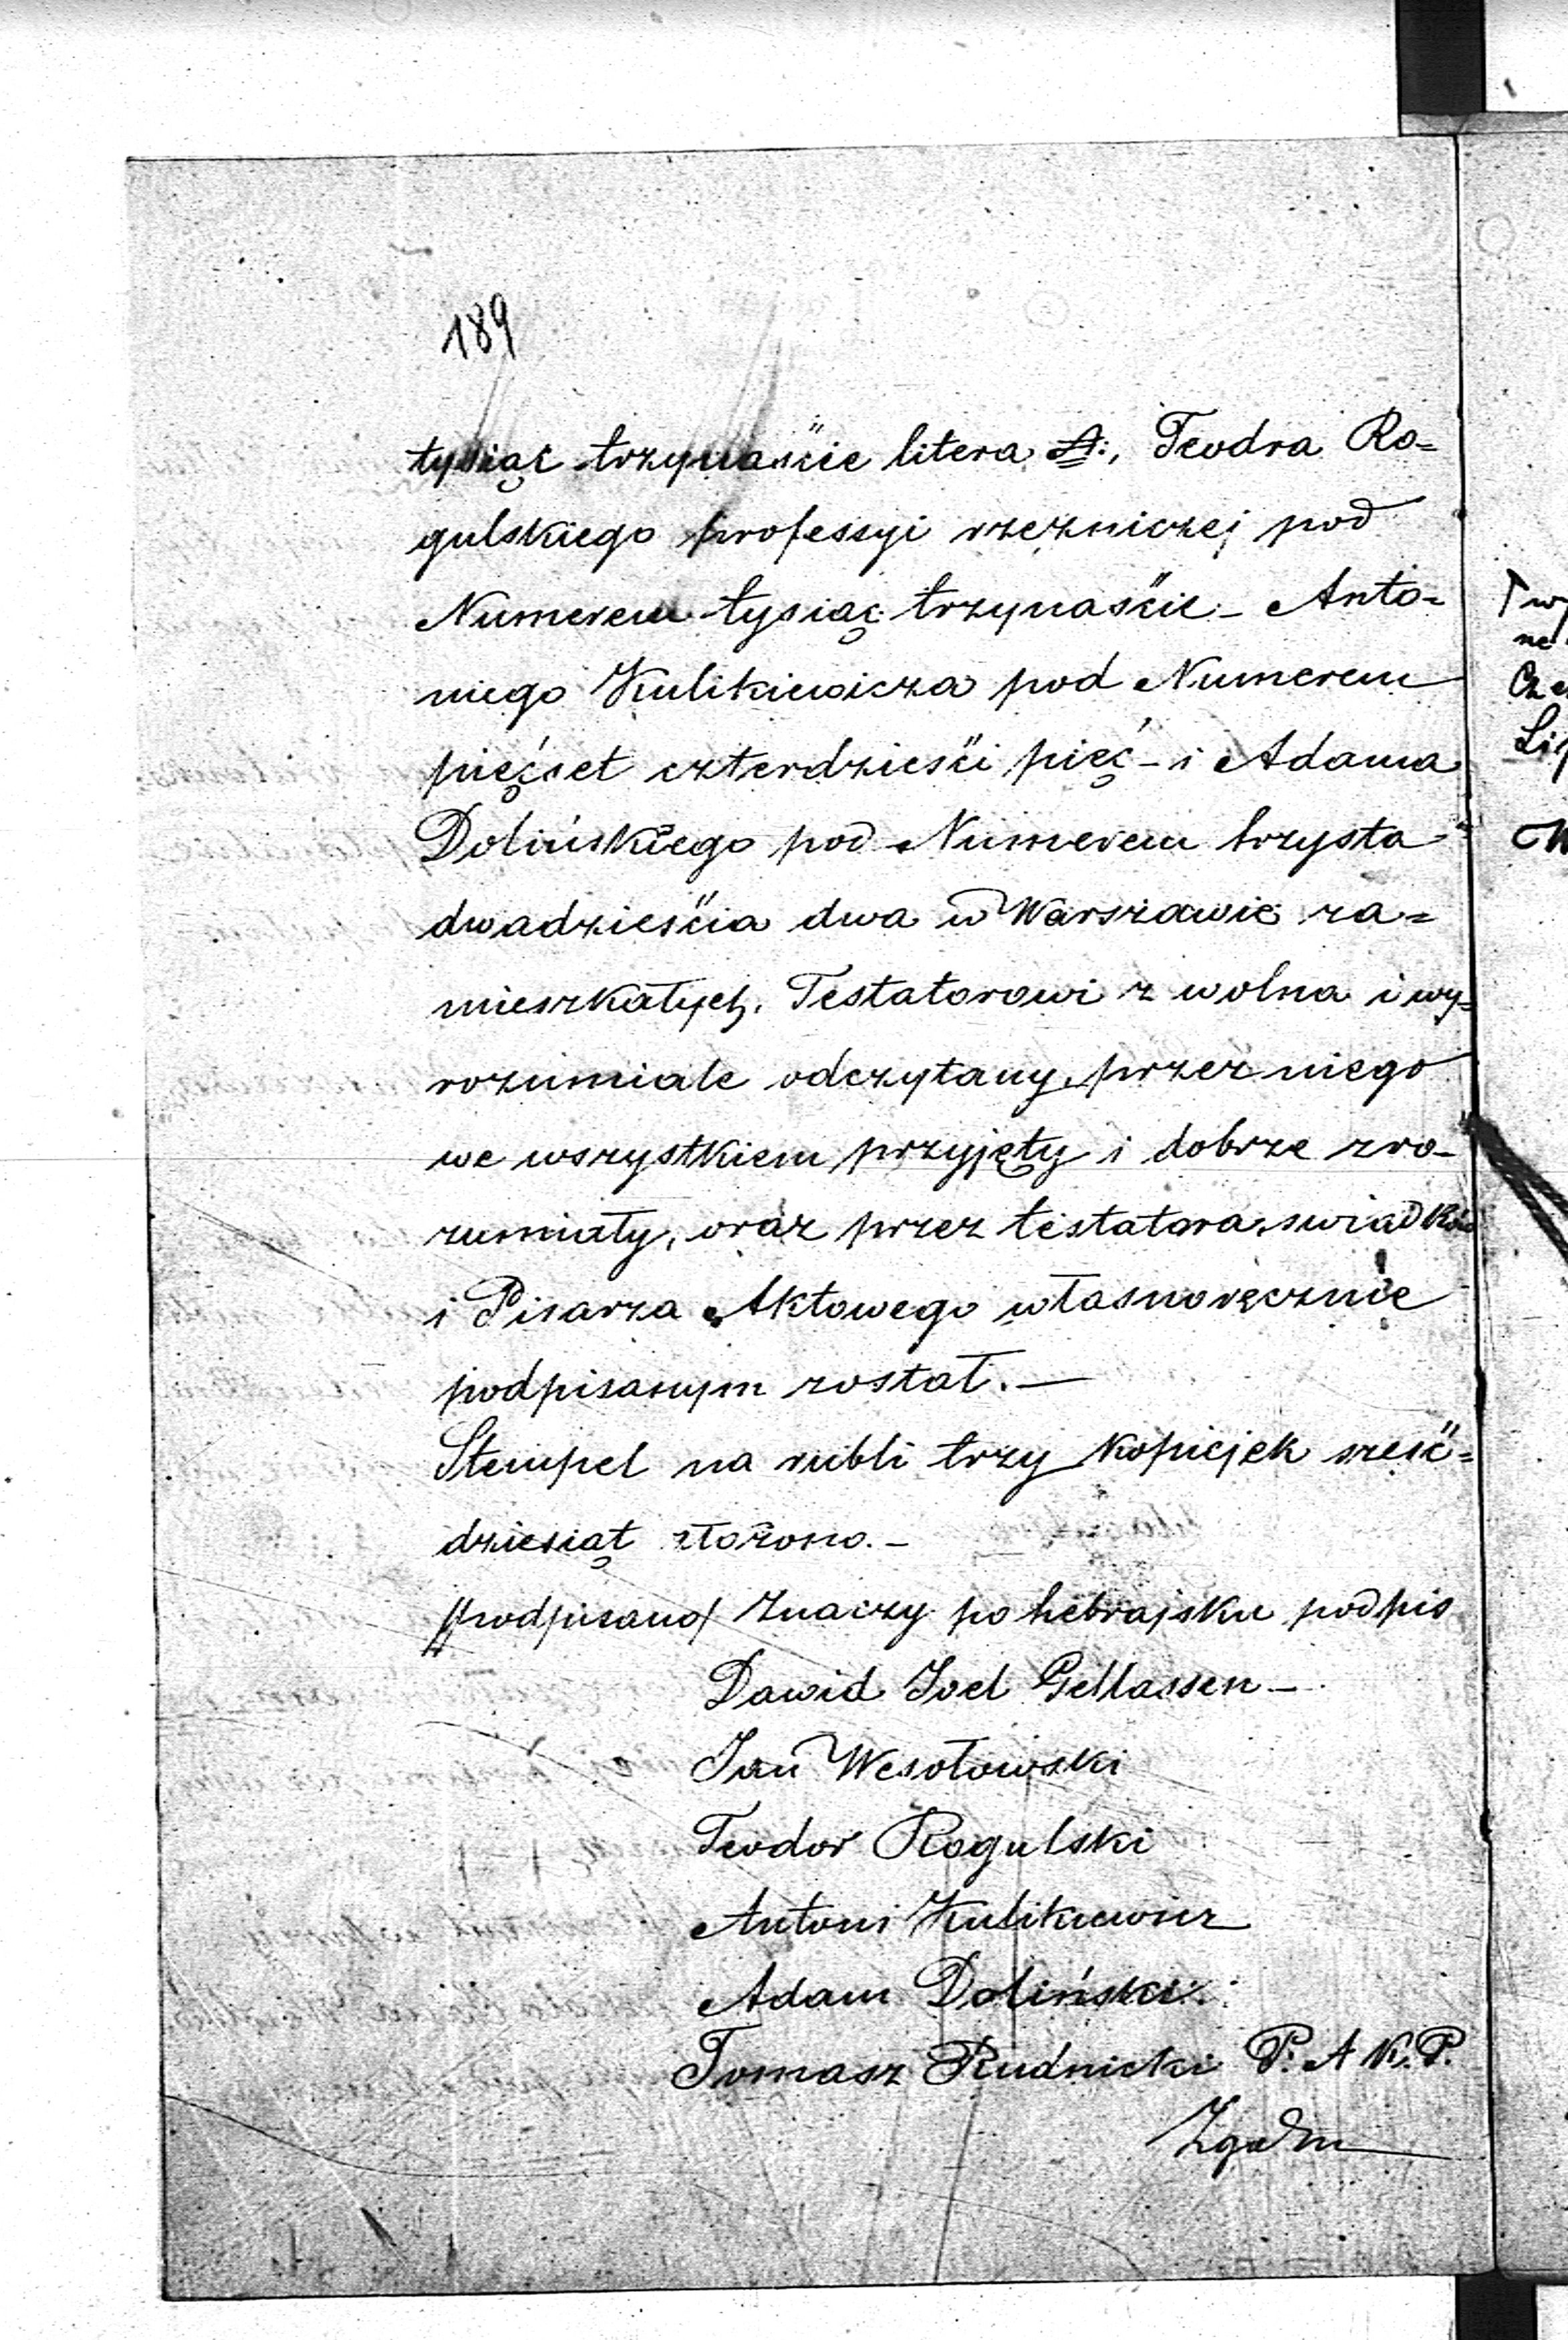 189
tysiąc trzynaście litera A:, Teodra Ro=
gulskiego professyi rzezniczej pod
Numerem tysiąc trzynaście – Anto=
niego Kulikiewicza pod Numerem
pięćset czterdzieści pięć – i Adama
Dolińskiego pod Numerem trzysta
dwadzieścia dwa w Warszawie za=
mieszkałych. Testatorowi z wolna i wy=
rozumiale odczytany, przez niego
we wszystkiem przyjęty i dobrze zro-
zumiały, oraz przez testatora, swiadków
i Pisarza Aktowego własnoręcznie
podpisanym został. —
Stempel na rubli trzy kopiejek sześć=
dziesiąt złożono. –
/podpisano/ Znaczy po hebrajsku podpis
Dawid Joel Gellassen –
Jan Wesołowski
Teodor Rogulski
Antoni Kulikiewicz
Adam Doliński
Tomasz Rudnicki P. A K. P.